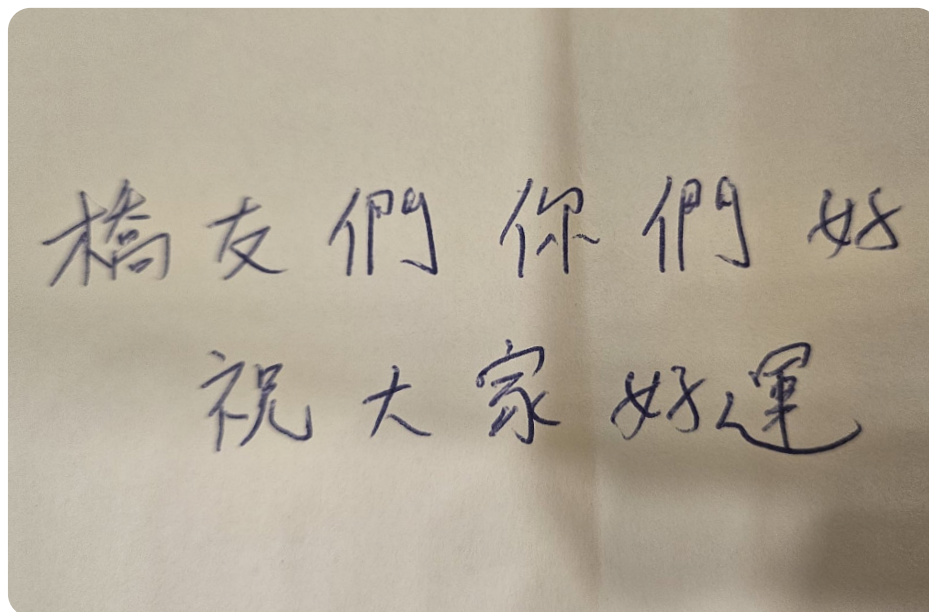 橋友們你們好
祝大家好運